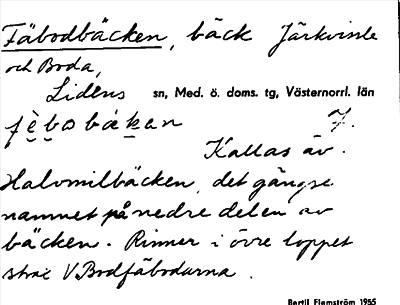 Fäbodbäcken, bäck Järkvissle
och Boda,
Lidens sn, Med. ö. doms. tg, Västernorrl. län
fè̱bobäkan 7.
Kallas äv.
Halvmilbäcken, det gängse
namnet på nedre delen av
bäcken. Rinner i övre loppet
strax V. Bodfäbodarna.
Bertil Flemström 1955